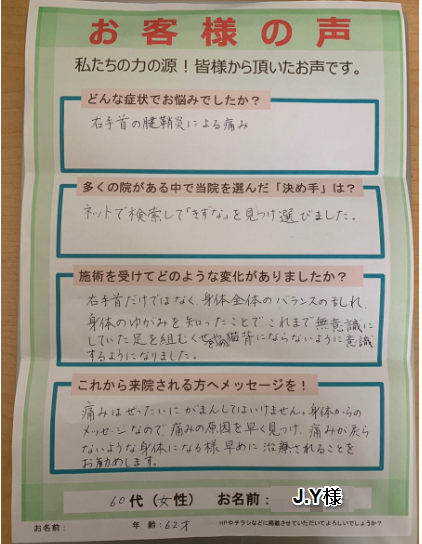 お客様の声
私たちの力の源！皆様から頂いたお声です。
どんな症状でお悩みでしたか？
右手首の腱鞘炎による痛み
多くの院がある中で当院を選んだ「決め手」は？
ネットで検索して「きずな」を見つけ選びました。
施術を受けてどのような変化がありましたか？
右手首だけではなく、身体全体のバランスの乱れ、
身体のゆがみを知ったことでこれまで無意識に
していた足を組むくせや猫背にならないように意識
するようになりました。
これから来院される方へメッセージを！
痛みはぜったいにがまんしてはいけません。身体からの
メッセージなので痛みの原因を早く見つけ、痛みが戻ら
ないような身体になる様早めに治療されることを
お勧めします。
60代（女性） お名前： J.Y様
お名前： 年齢：62才 HPやチラシなどに掲載させていただいてよろしいでしょうか？